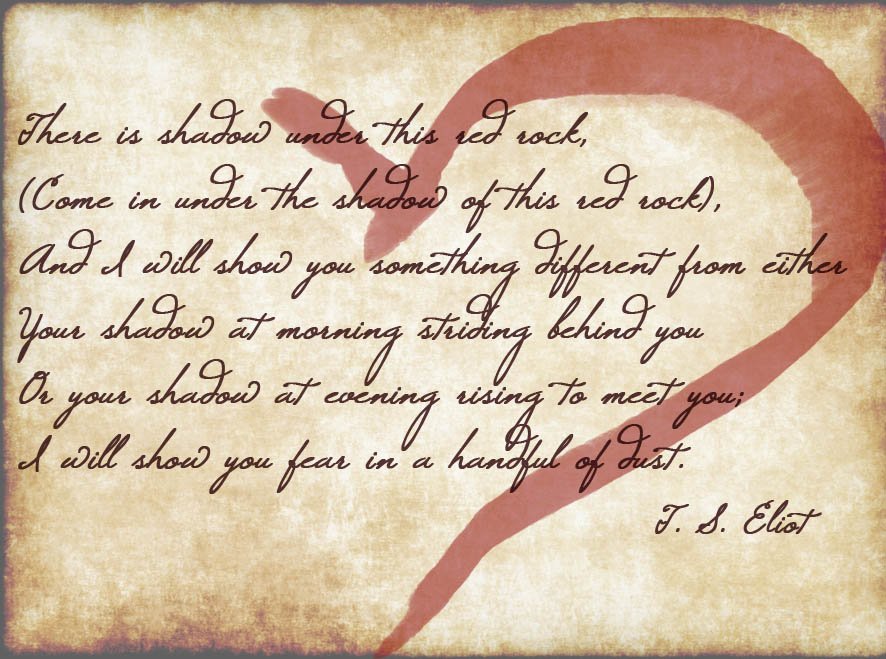 There is shadow under this red rock,
(Come in under the shadow of this red rock),
And I will show you something different from either
Your shadow at morning striding behind you
Or your shadow at evening rising to meet you;
I will show you fear in a handful of dust.
T. S. Eliot